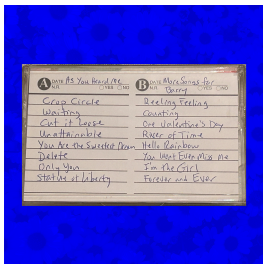 A DATE As You Heard Me
N.R. YES NO
Crop Circle
Waiting
Cut it Loose
Unattainable
You Are the Sweetest Down
Delete
Only You
Statue of Liberty
B DATE More Songs for
N.R. Barry YES NO
Reeling Feeling
Counting
One Valentine's Day
River of Time
Hello Rainbow
You Won't Even Miss Me
I'm the Girl
Forever and Ever